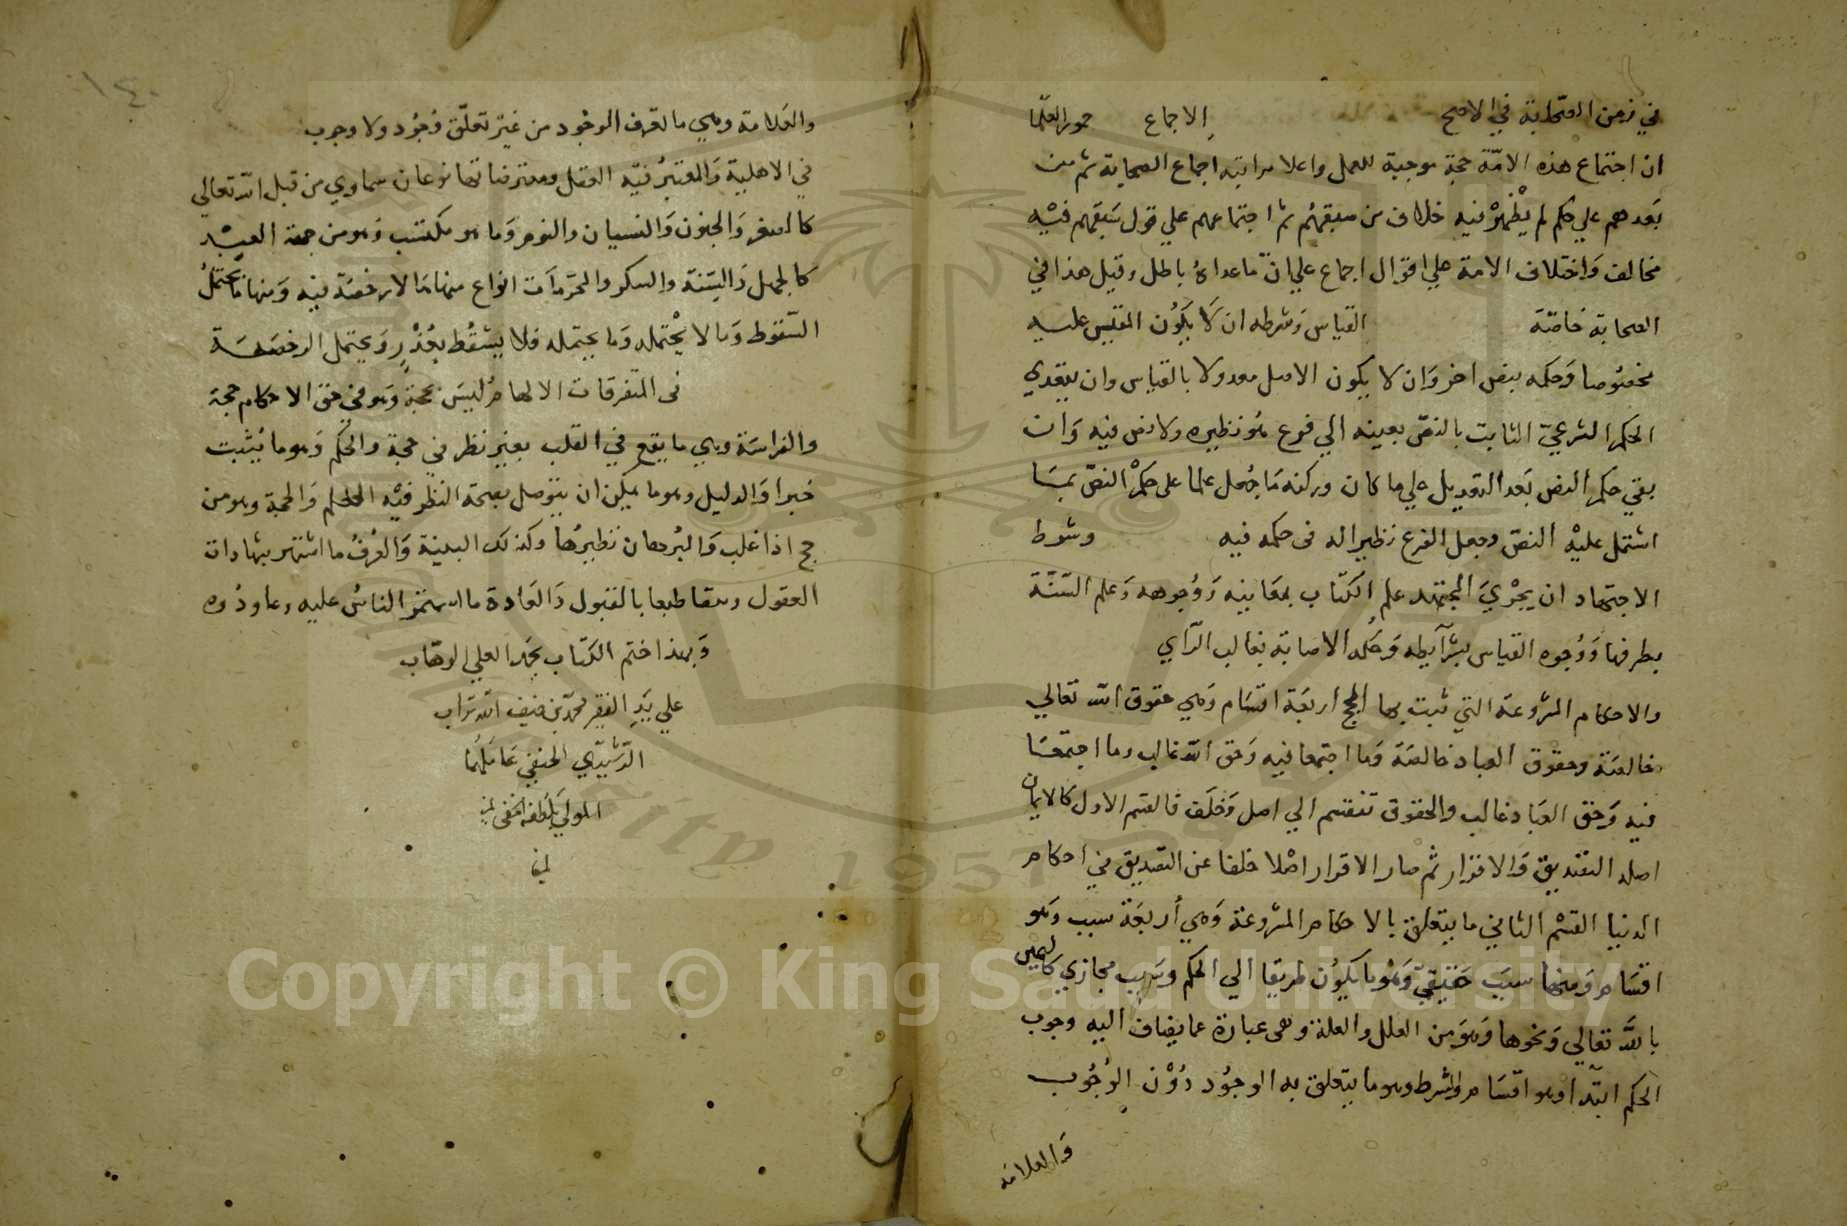 في زمن الصحابة في الاصح الاجماع جمهور العلما
ان اجتماع هذه الامّة حجة موجبة للعمل واعلا مراتبه اجماع الصحابة ثم من
بَعدهم علي حكم لم يظْهرْ فيه خلاف من سبقهُم ثم اجتماعهم علي قول سَبَقهم فيْه
مخالف وَاختلاف الامة علي اقوَال اجماع علي انّ ما عداهُ باطل وقيل هذا في
الصحابة خاصّة القياس وَشرطه ان لا يَكوُن المقيس عليه
مخصُوصا وَحكمه بنص اخر وَان لا يكون الاصل معدولا بالقياس وان يتعَدي
الحكم الشرعيّ الثابت بالنصّ بعينه الي فرع هُو نظيره ولا نص فيه وَان
يبقي حكم النص بَعد التعديل علي ما كان وركنه مَا جُعل علما على حكمْ النصّ مِمَّا
اشتمل عليْه النصّ وجعل الفرع نظيرا له في حكمه فيه وشرط
الاجتهاد ان يحْويَ المجتهد علم الكتَاب بمعَانيه وَوُجوهه وَعلم السّنّة
بطرقها وَوُجوه القياس بشرآيطه وَحُكمه الاصابة بغالب الرّاي
والاحكام المشروعة التي تثبت بها الحجج اربعَة اقسَام وَهي حقوق الله تعَالي
خالصَة وحقوق العباد خالصَة وَما اجتمعا فيه وَحق الله غالب وما اجتمعَا
فيه وَحَق العبَاد غالب والحقوق تنقسَم الي اصل وَخلَف فالقسم الاول كالايمان
اصله التصْديق وَالاقرار ثم صار الاقرار اصْلا خلفا عن التصْديق في احكام
الدنيا القسْم الثاني ما يتعلق بالاحكام المشروعة وَهي أربعَة سبب وَهو
اقسَام وَمنها سبَب حَقيقيّ وَهُو ما يَكوُن طريقا الي الحكم وسَبب مجازي كاليمين
بالله تعَالي وَنحوها وَهوَ من العلل والعلة وهى عبارة عما يضاف اليه وجوب
الحكم ابتدآ وهو اقسَام والشرط وهو ما يتعلق به الوجوُد دوُن الوُجُوب
وَالعلامة
١٤٠
والعَلامة وهي ما يعَرف الوجُود من غيرَ تعلّق وُجُود ولا وجوب
في الاهلية وَالمعتبرُ فيه العقل ومعترضاتها نوعان سماوي من قبل الله تعَالي
كالصغر وَالجنون وَالنسيان والنوم وَما هو مكتسَب وَهو من جهة العبْد
كالجهل وَالسّفه والسكر والمحرّمَات انواع منها مَا لا رخصَة فيه وَمنها مَا يحتملُ
السّقوط وَما لا يحْتمله وَما يحتمله فلا يسْقُط بعُذْرٍ وَيحتمل الرخصَة
في المتفرقات الالهامُ ليسَ بحجة وَهو في حق الاحكام حجة
والفراسَة وهي ما يقع في القلب بغير نظر في حجة والحكم وَهو ما يُثبت
خبرا وَالدليل وهو ما يمكن ان يتوَصل بصحة النظر فيْه الي العلم وَالحجة وهو من
حج اذا غلب وَالبُرهان نظيرُها وكذلك البينة وَالعُرفُ ما اشتهر بشهادات
العقول وتلقا طبعا بالقبول وَالعَادة ما استمر الناسُ عليه وعاودُوه
وَبهذا ختم الكتَاب بحمد العلي الوهّاب
علي يَدِ الفقير محمّد بن ضيف الله تراب
الرّشيدّي الحنفي عَاملهُما
المولي بلطفه الخفي